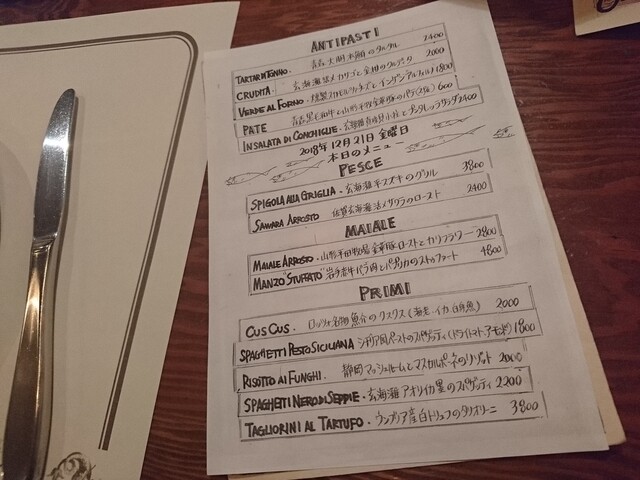 ANTIPASTI
TARTAR DI TONNO. 青森大間本鮪のタルタル 2400
CRUDITA. 玄海灘活〆カサゴと金柑のクルディタ 2000
VERDE AL FORNO. 燻製スカモルツァチーズと 1800
PATE 600
INSALATA DI CONCHIGLIE. 2400
2018年12月21日金曜日
本日のメニュー
PESCE
SPIGOLA ALLA GRIGLIA - 玄海灘平スズキのグリル 3800
SAWARA ARROSTO 佐賀玄海灘活〆サワラのロースト 2400
MAIALE
MAIALE ARROSTO - 山形平田牧場金華豚ローストとカリフラワー 2800
MANZO "STUFFATO" 岩手若牛バラ肉とパプリカのストゥファート 4800
PRIMI
CUS CUS. ロッツォ名物魚介のクスクス(海老、イカ、白身魚) 2000
SPAGHETTI PESTO SICILIANA シチリア風ペーストのスパゲッティ(ドライトマト、アーモンド) 1800
RISOTTO AI FUNGHI. 静岡マッシュルームとマスカルポーネのリゾット 2000
SPAGHETTI NERO DI SEPPIE - 玄海灘アオリイカ墨のスパゲッティ 2200
TAGLIORINI AL TARTUFO - ウンブリア産白トリュフのタリオリーニ 3800